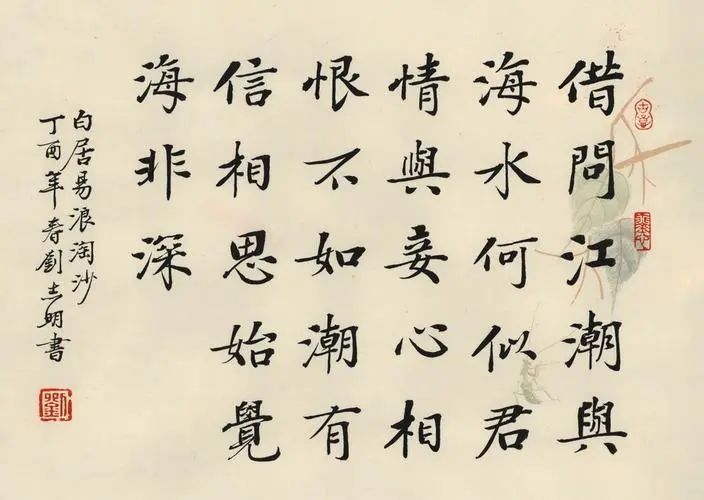 借問江潮與
海水何似君
情與妾心相
恨不如潮有
信相思始覺
海非深
白居易浪淘沙
丁酉年春劉志明書
劉